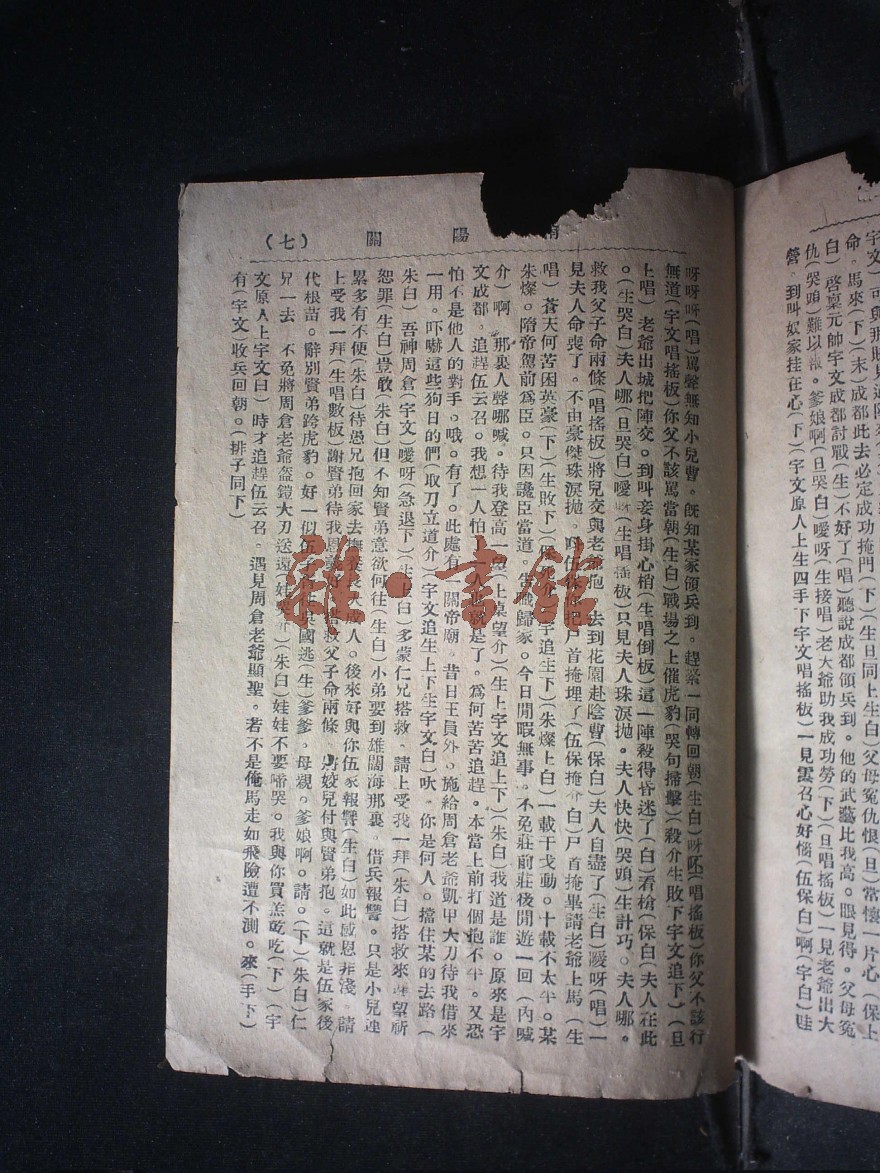 字文)
命。馬來(下)(末)成都此去必定成功掩門(下)(生旦同上生白)父母寃仇恨(旦)常懷一片心(保上
白)啓稟元帥宇文成都討戰(生)不好了(唱)聽說成都領兵到。他的武藝比我高。眼見得。父母寃
仇(哭頭)難以報。爹娘啊(旦哭白)噯呀(生接唱)老大爺助我成功勞(下)(旦唱搖板)一見老爺出大
營。到叫奴家挂在心(下)(宇文原人上生四手下宇文唱搖板)一見雲召心好惱(伍保白)啊(宇白)哇
(七) 關 陽
呀呀呀(唱)罵聲無知小兒曹。既知某家領兵到。趕緊一同轉回朝(生白)呀呸(唱搖板)你父不該行
無道(宇文唱搖板)你父不該罵當朝(生白)戰塲之上催虎豹(哭句掃擊)殺介生敗下宇文追下)(旦
上唱)老爺出城把陣交。到叫妾身掛心梢(生唱倒板)這一陣殺得昏迷了(白)看槍(保白)夫人在此
。(生哭白)夫人哪(旦哭白)噯呀(生唱搖板)只見夫人珠淚拋。夫人快快(哭頭)生計巧。夫人哪。
救我父子命兩條(唱搖板)將兒交與老爺抱。去到花園赴陰曹(保白)夫人自盡了(生白)噯呀(唱)一
見夫人命喪了。不由豪傑珠淚拋。叫伍保你把尸首掩埋了(伍保掩介白)尸首掩畢請老爺上馬(生
唱)蒼天何苦困英豪(下)(生敗下)(保介宇追生下)(朱燦上白)一載干戈動。十載不太平。某
朱燦。隋帝駕前爲臣。只因讒臣當道。告職歸家。今日閒暇無事。不免莊前莊後閒遊一回(內喊
介)啊。那裏人聲哪喊。待我登高一望(上桌望介)(生上宇文追上下)(朱白)我道是誰。原來是宇
文成都。追趕伍云召。我想一人怕一人也就是了。爲何苦苦追趕。本當上前打個抱不平。又恐
怕不是他人的對手。哦。有了。此處有一關帝廟。昔日王員外。施給周倉老爺凱甲大刀待我借來
一用。吓嚇這些狗日的們(取刀立道介)(宇文追生上下生字文白)呔。你是何人。擋住某的去路(
朱白)吾神周倉(宇文)噯呀(急退下)(生上白)多蒙仁兄搭救。請上受我一拜(朱白)搭救來遲望祈
恕罪(生白)豈敢(朱白)但不知賢弟意欲何往(生白)小弟要到雄闊海那裏。借兵報讐。只是小兒連
累多有不便(朱白)待愚兄抱回家去撫養長大成人。後來好與你伍家報讐(生白)如此感恩非淺。請
上受我一拜(生唱數板)謝賢弟待我恩義好。搭救父子命兩條。將姣兒付與賢弟抱。這就是伍家後
代根苗。辭別賢弟跨虎豹。好一似伍子胥吳國逃(生)爹爹。母親。爹娘啊。請。(下)(朱白)仁
兄一去。不免將周倉老爺盔鎧大刀送還(娃哭介)(朱白)娃娃不要啼哭。我與你買羔乾吃(下)(宇
文原人上宇文白)時才追趕伍云召。遇見周倉老爺顯聖。若不是俺馬走如飛險遭不測。來(手下)
有(宇文)收兵回朝。(排子同下)
雜·書館